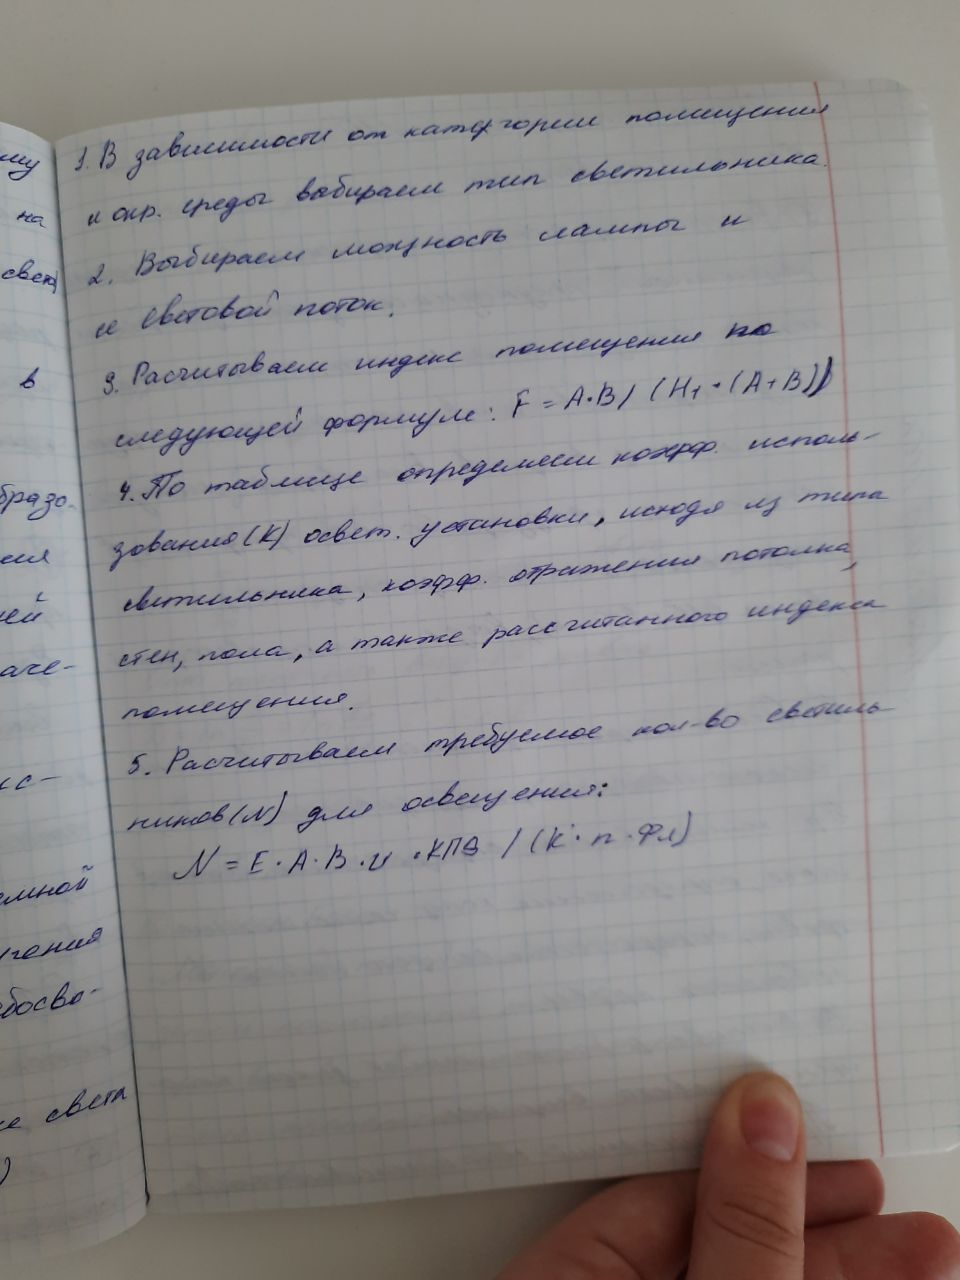 му
на
свет
в
бразо-
ния
ней
аче-
кс-
емной
игания
ебосво-
ие света
)
1. В зависимости от категории помещения
и окр. среды выбираем тип светильника.
2. Выбираем мощность лампы и
ее световой поток.
3. Расчитываем индекс помещения по
следующей формуле: F = A·B / (H1·(A+B))
4. По таблице определяем коэфф. исполь-
зования (К) освет. установки, исходя из типа
светильника, коэфф. отражения потолка,
стен, пола, а также рассчитанного индекса
помещения.
5. Расчитываем требуемое кол-во светиль-
ников (N) для освещения:
N = E·A·B·и·КПВ / (K·n·Фл)